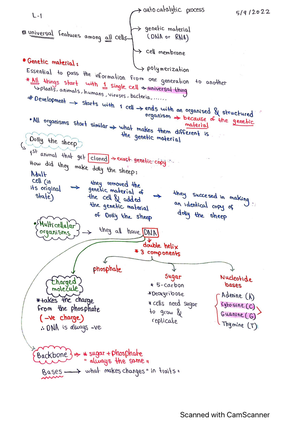 L-1
5/9/2022
autocatalytic process
universal features among all cells
genetic material
(DNA or RNA)
cell membrane
polymerization
Genetic material:
Essential to pass the information from one generation to another
* All things start with 1 single cell → universal thing
plants, animals, humans, viruses, bacteria........
* Development → starts with 1 cell → ends with an organised & structured
organism → because of the genetic
material
All organisms start similar → what makes them different is
the genetic material
Dolly the sheep
1st animal that got cloned → exact genetic copy
How did they make dolly the sheep:
Adult
cell (in
its original
state)
they removed the
genetic material of
the cell & added
the genetic material
of Dolly the sheep
they succeed in making
an identical copy of
dolly the sheep
Multicellular
organisms
they all have DNA
double helix
* 3 components
phosphate
sugar
* 5-carbon
* Deoxyribose
* cells need sugar
to grow &
replicate
Nucleotide
bases
Adenine (A)
Cytosine (C)
Guanine (G)
Thymine (T)
Charged
molecule
* takes the charge
from the phosphate
(-ve charge)
∴ DNA is always -ve
Backbone → * sugar + phosphate
- always the same *
Bases → what makes changes - in traits *
Scanned with CamScanner